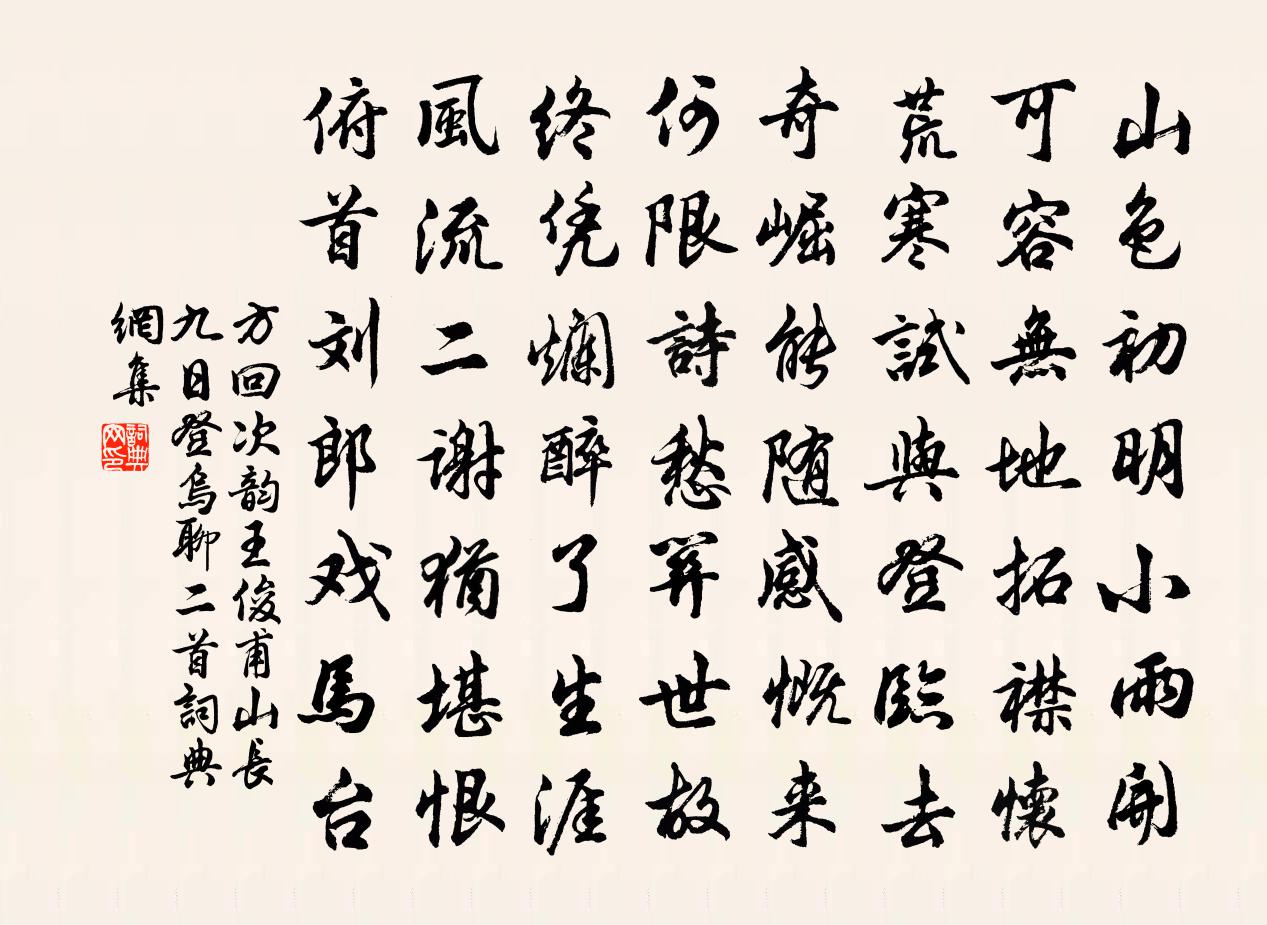 山色初明小雨開
可容無地拓襟懷
荒寒試與登臨去
奇崛能随感慨来
何限詩愁罪世故
终凭爛醉了生涯
風流二谢猶堪恨
俯首刘郎戏馬台
方回次韵王俊甫山長
九日登烏聊二首詞典
網集
詞典网